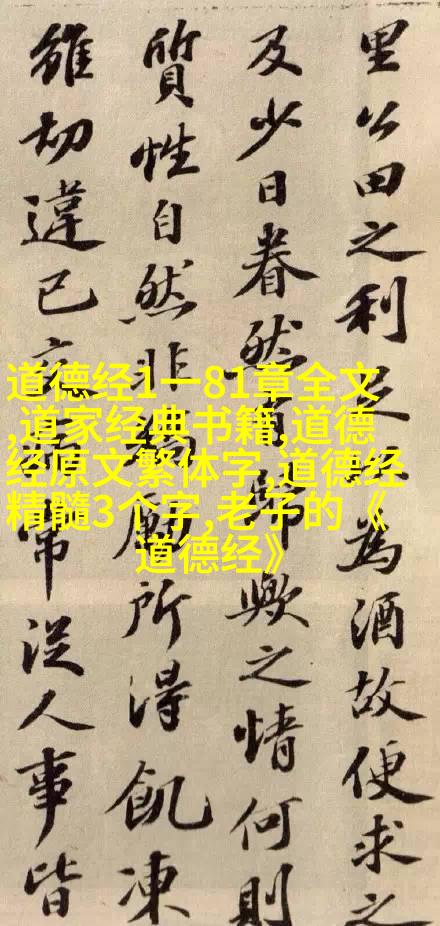 里公田之利足為酒故便求之
及少日眷然有歸歟之情何則
質性自然非矯厲所得飢凍
雖切違己交從人事皆
道德经1一81章全文
,道家经典书籍,道德
经原文繁体字,道德经
精髓3个字,老子的《
道德经》